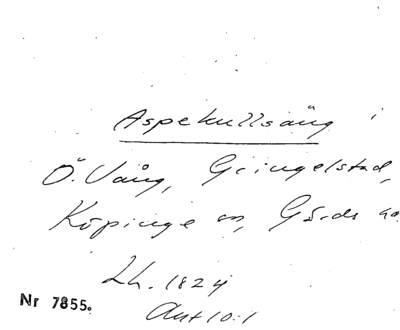 Aspekullsäng i
Ö. Vång, Gringelstad,
Köpinge sn, Gärds hd
Lh. 1824
Akt 10:1
Nr 7855.